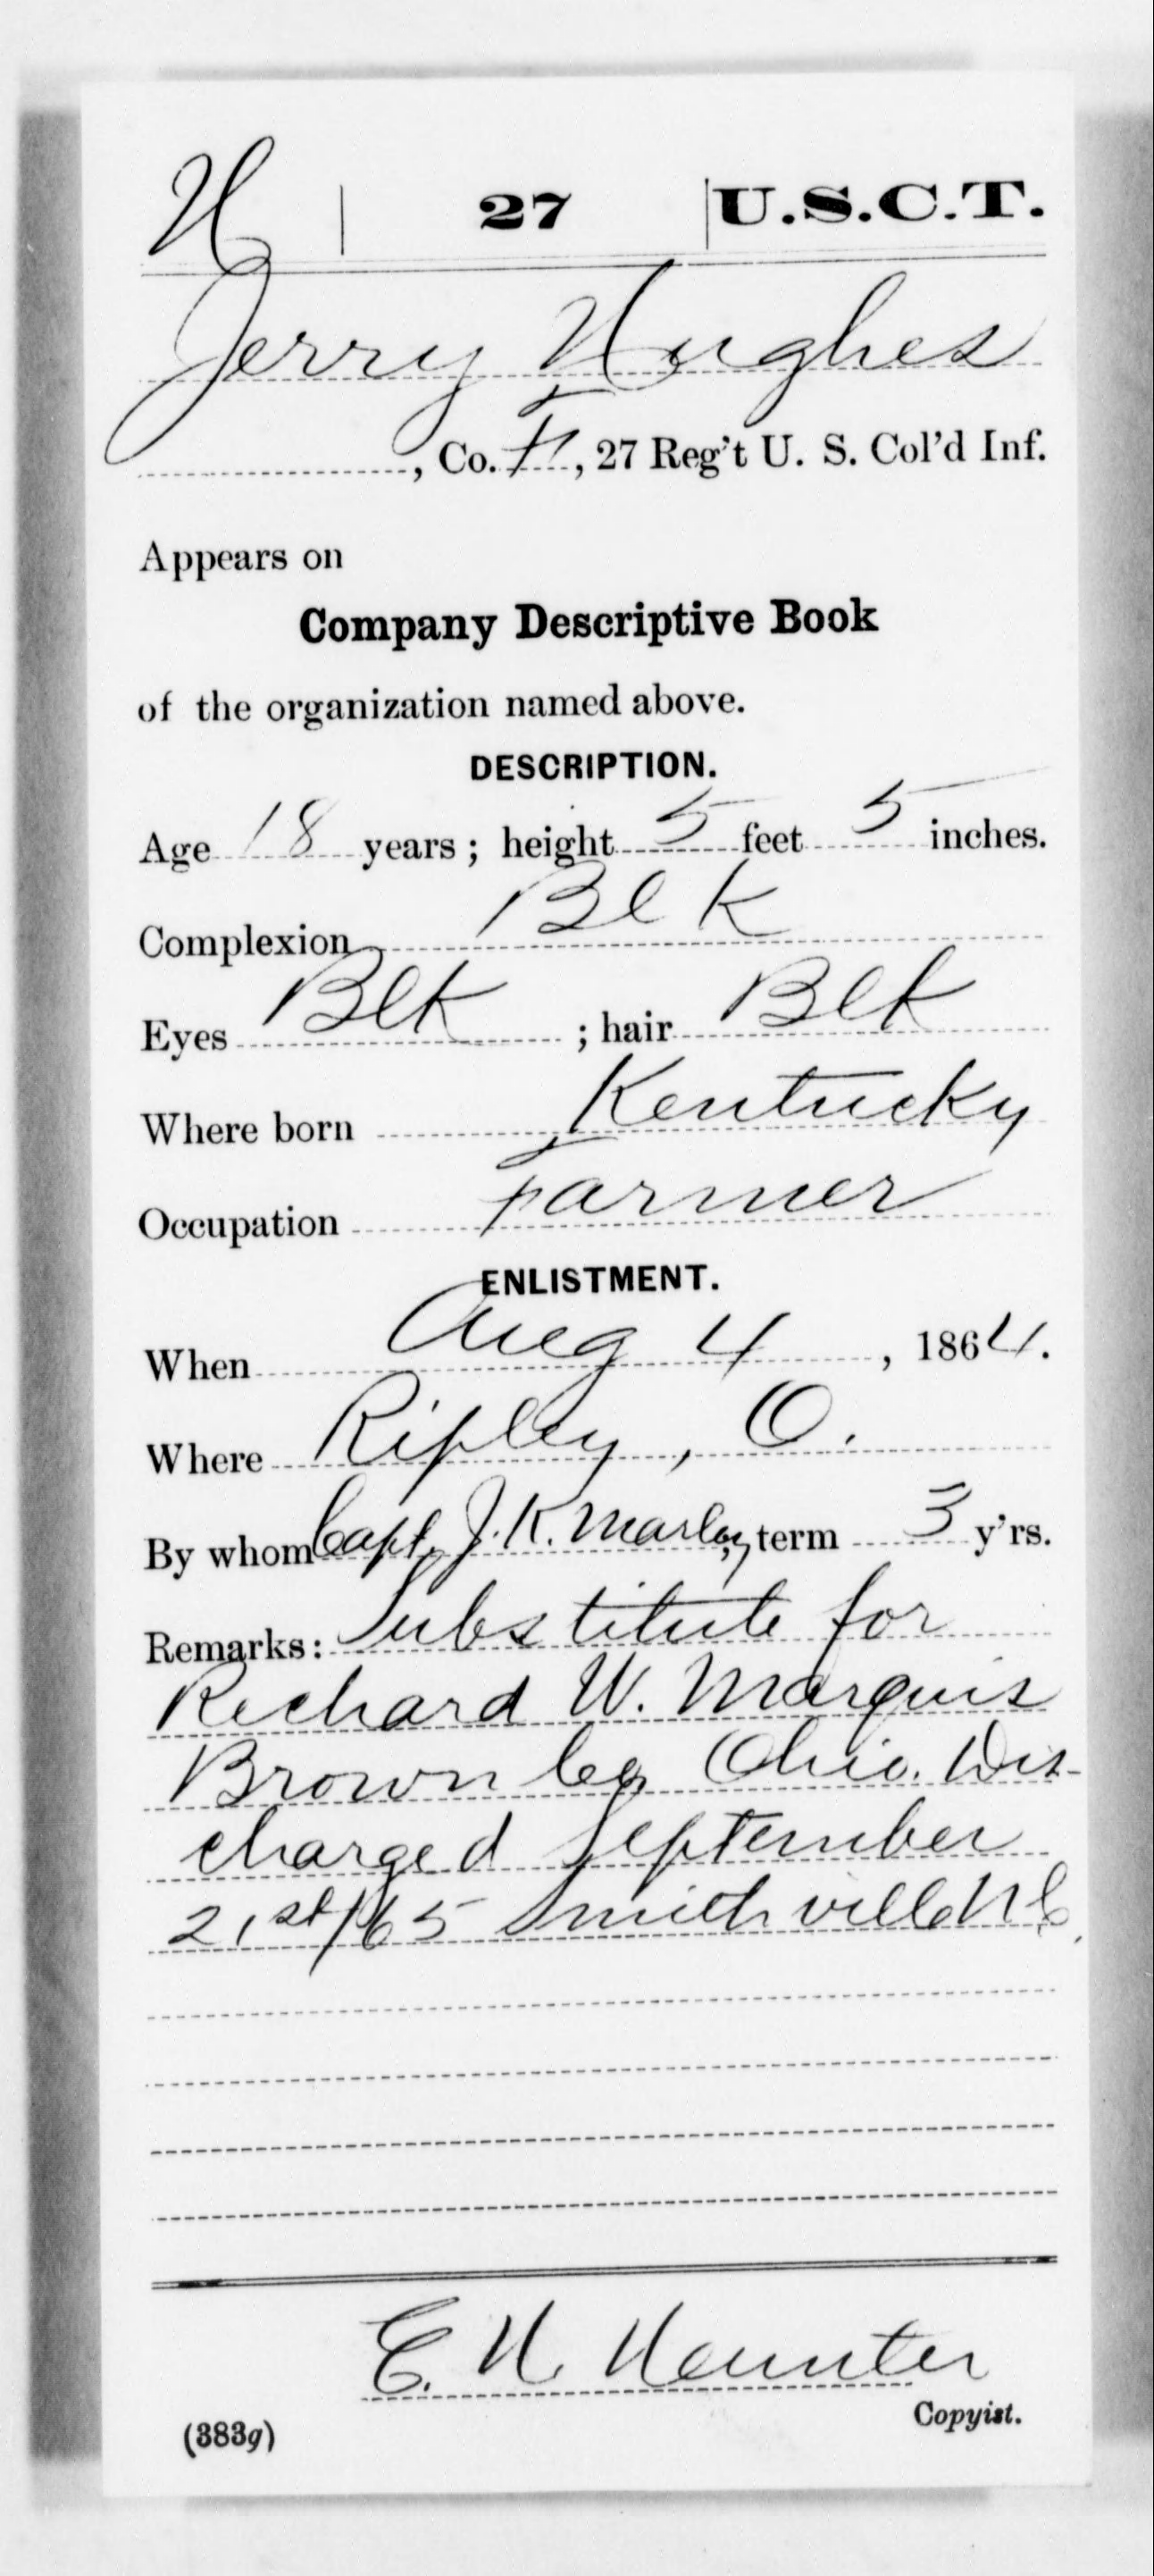 H | 27 | U.S.C.T.
Jerry Hughes
, Co. H, 27 Reg't U. S. Col'd Inf.
Appears on
Company Descriptive Book
of the organization named above.
DESCRIPTION.
Age 18 years; height 5 feet 5 inches.
Complexion Blk
Eyes Blk ; hair Blk
Where born Kentucky
Occupation Farmer
ENLISTMENT.
When Aug 4, 1864.
Where Ripley, O.
By whom Capt. J. K. Marley; term 3 y'rs.
Remarks: Substitute for
Richard W. Marquis
Brown Co Ohio. Dis-
charged September
21st/65 Smithville N C.
E. H.
Copyist.
(383g)